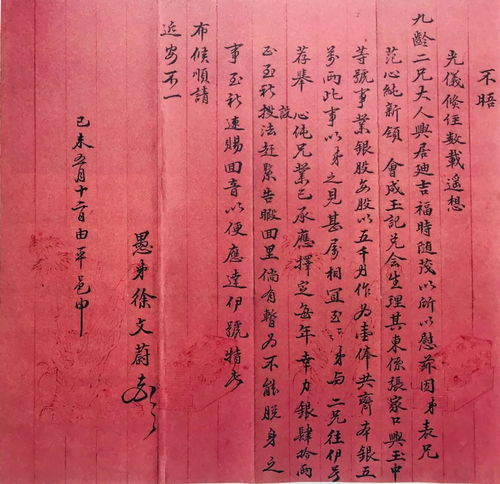 不晤
光儀倏數載遙想
九齡二兄大人興居迪吉福時隨茂以所以慰茲因弟表兄
范心純新領 會成玉記兌會生理其東係張家口興玉中
等號事業銀股每股以五千作為壹俸共齊本銀五
萬兩此事以弟之見甚屬相宜弟與二兄往伊号
荐舉 心純兄業已承應擇定每年辛力銀肆拾兩
至祈設法赶緊告暇回里倘有暫為不能脫身之
事至祈速賜回音以便應達伊號特此
布候順請
近安不一
愚弟徐文蔚
己未月十日由平邑申